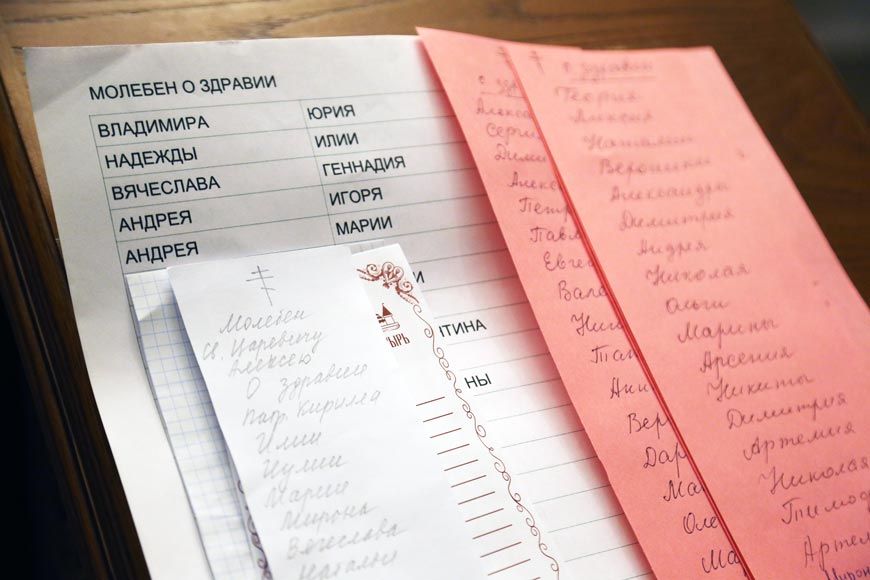 МОЛЕБЕН О ЗДРАВИИ
ВЛАДИМИРА ЮРИЯ
НАДЕЖДЫ ИЛИИ
ВЯЧЕСЛАВА ГЕННАДИЯ
АНДРЕЯ ИГОРЯ
АНДРЕЯ МАРИИ
И
ТИНА
НЫ
ЫРЬ
Молебен
Св. Царевичу
Алексею
О Здравие
Патр. Кирилла
Илии
Иулии
Марие
Мирона
Вячеслава
Наталии
Алекс
Серги
Дими
Алекс
Петр
Павл
Евге
Вале
Ник
Тать
Анн
Вер
Дар
Ма
Оле
Ма
о здравии
Георгия
Алексия
Наталии
Вероники
Александры
Димитрия
Андрея
Николая
Ольги
Марины
Арсения
Никиты
Димитрия
Артемия
Николая
Тимоф
Артем
Мирон